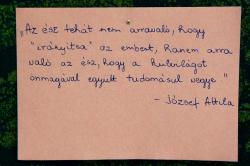 „Az ész tehát nem arravaló, hogy
"irányítsa" az embert, hanem arra
való az ész, hogy a külvilágot
önmagával együtt tudomásul vegye."
- József Attila